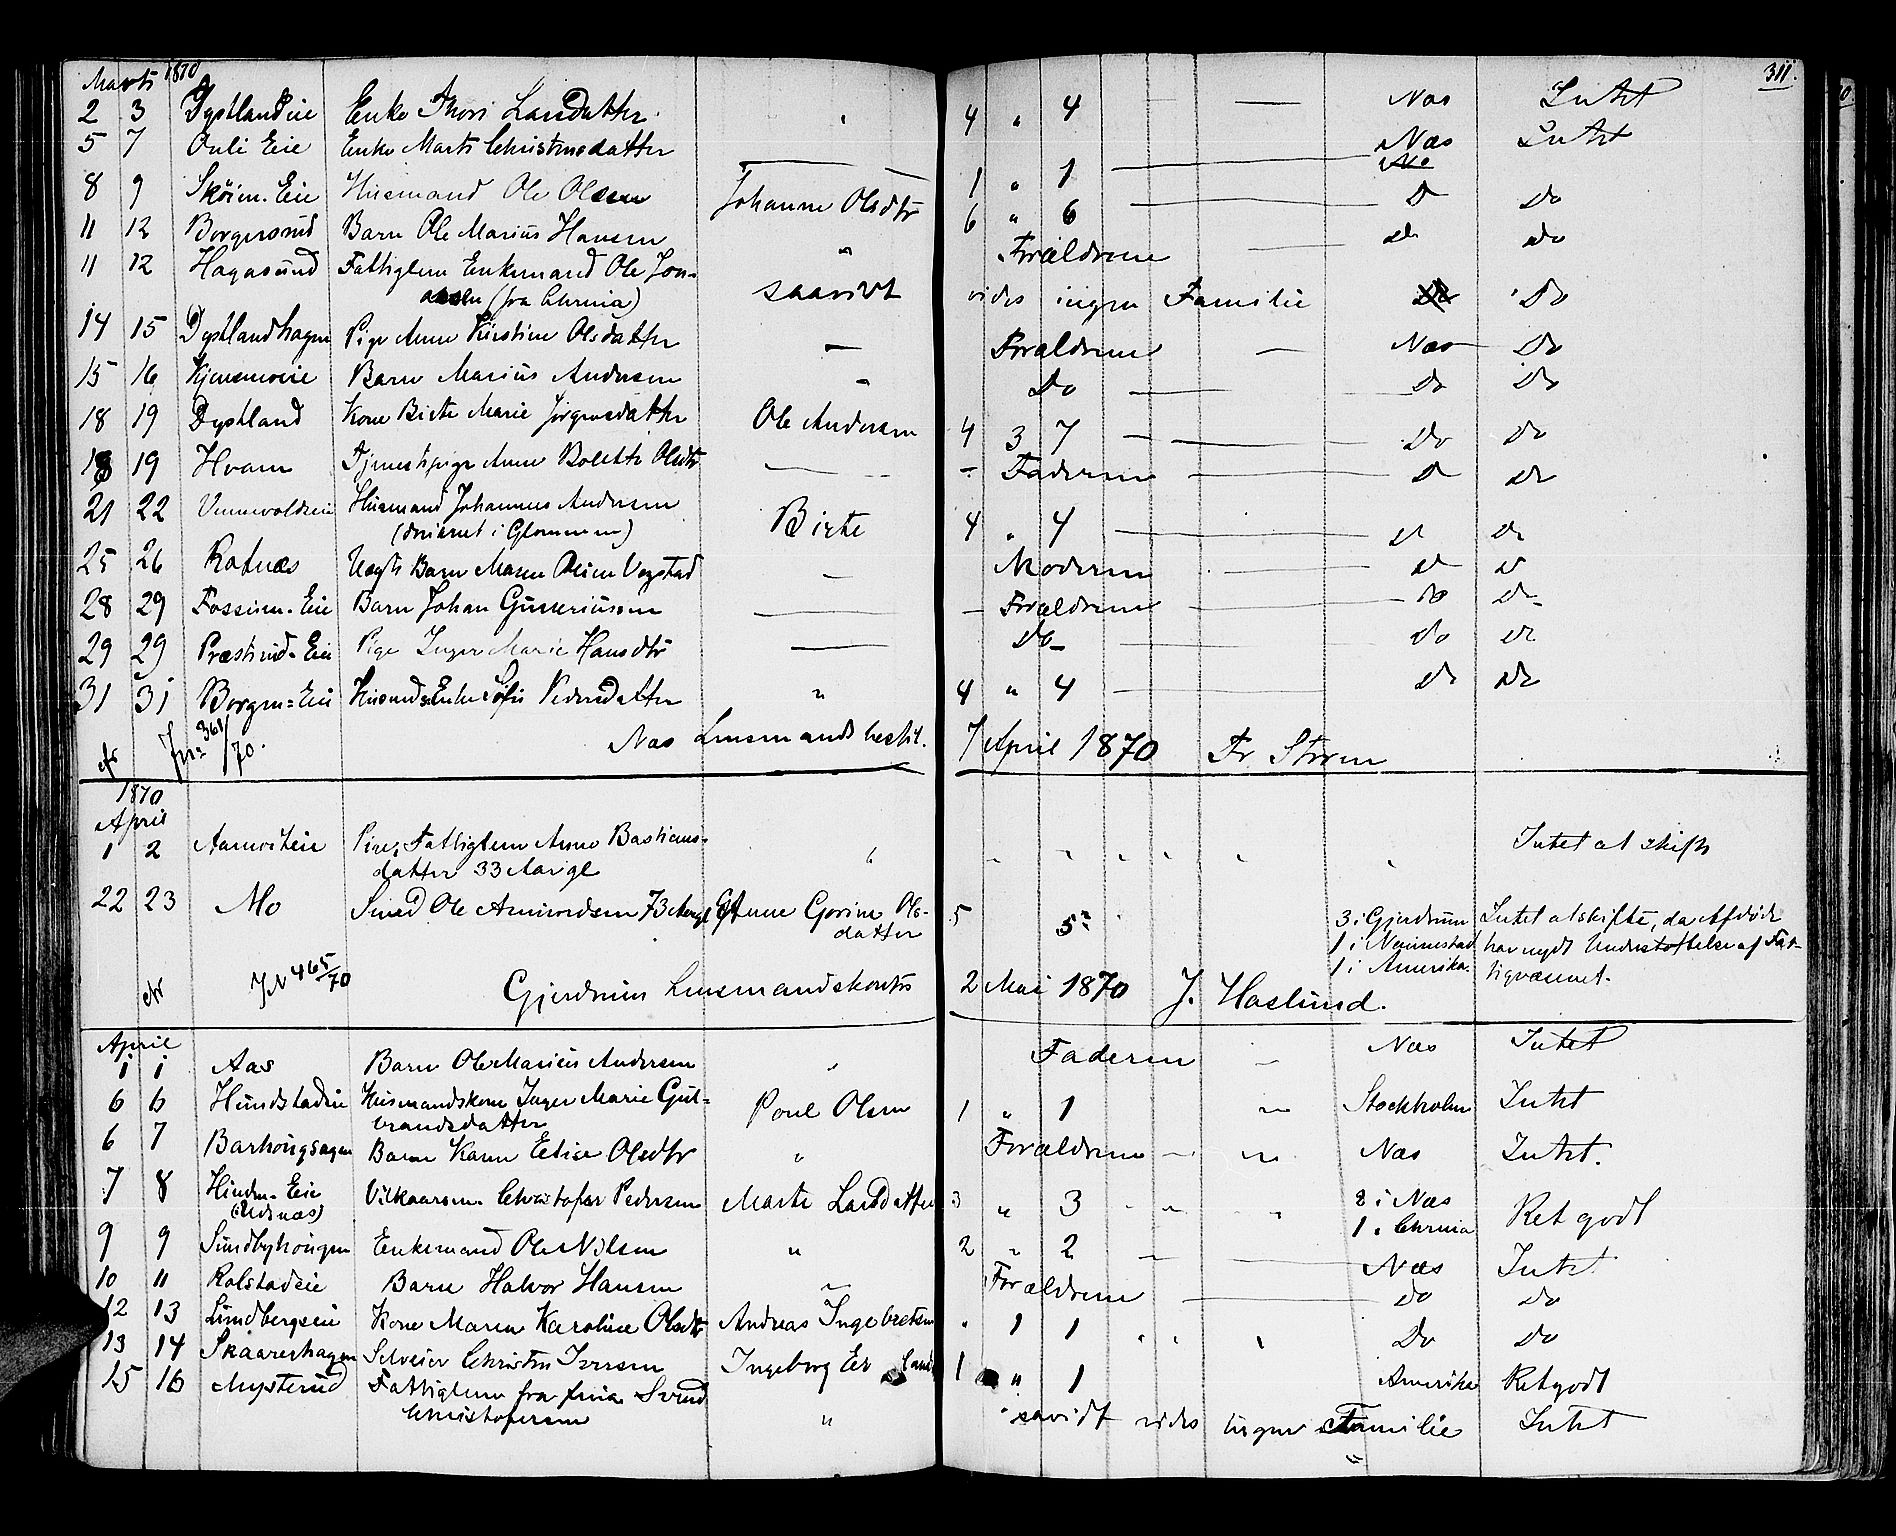 311.
Marts 1870
2 3 Dystland eie Enke Thori Larsdatter " 4 " 4 — — Næs Intet
5 7 Ouli Eie Enke Marte Christensdatter — 1 " 1 — Næs Intet
8 9 Skøien-Eie Husmand Ole Olsen Johanne Olsdtr 6 " 6 — Do Do
11 12 Borgersrud Barn Ole Marius Hansen " Forældrene — do do
11 12 Hagasund Fattiglem Enkemand Ole Jon-
(fra Chrnia) saavidt vides ingen Familie Do
14 15 Dystlandhagen Pige Anne Kirstine Olsdatter — Forældrene — Næs Do
15 16 Barn Marius Andersen — Do — Do Do
18 19 Dystland Kone Birte Marie Jørgensdatter Ole Andersen 4 3 7 — Do Do
18 19 Hvam Tjenestepige Anne Bolette Olsdtr — Faderen — Do Do
21 22 Vennevoldseie Husmand Johannes Andersen
(druknet i Glommen) Birte 4 " 4 — do do
25 26 Rotnæs Uægte Barn Maren Oline Vegstad — Moderen — do do
28 29 Fossum-Eie Barn Johan Gunneriussen — Forældrene — do do
29 29 Præstrud-Eie Pige Inger Marie Hansdtr — Do — Do do
31 31 Borgen-Eie Husmds Enke Sofie Pedersdatter " 4 " 4 — do do
cfr Jn: 361/70. Næs Lensmandsbestil. 7 April 1870 Fr Storm
1870
April
1 2 Aamodteie Pige, Fattiglem Anne Bastians-
datter 33 Aar gl " Intet at skifte
22 23 Mo Svend Ole Amundsen 73 Aar gl Anne Gorine Ols-
datter 5 5 3 i Gjerdrum
1 i Nannestad
1 i Amerika. Intet at skifte, da Afdøde
har nydt Understøttelse af Fat-
tigvæsenet.
cfr JN 465/70 Gjerdrum Lensmandskontor 2 Mai 1870 J. Haslund.
April
1 1 Aas Barn Ole Marius Andersen " Faderen — Næs Intet
6 6 Hundstadeie Husmandskone Inger Marie Gul-
brandsdatter Poul Olsen 1 " 1 — Stockholm Intet
6 7 Barhougsagen Barn Karen Elise Olsdtr " Forældrene — Næs Intet.
7 8 Hinden-Eie
(Udnæs) Vilkaarsm. Christofer Pedersen Marte Larsdatter 3 " 3 2 i Næs
1 i Chrnia Ret godt
9 9 Sundbyhougen Enkemand Ole Nilsen " 2 " 2 — Næs Intet
10 11 Rolstadeie Barn Halvor Hansen " Forældrene — Do Do
12 13 Lundbergseie Kone Maren Karoline Olsdtr Andreas Ingebretsen " 1 1 Do Do
13 14 Skaarerhagen Selveier Christen Iversen Ingeborg 1 " 1 Amerika Ret godt
15 16 Mysterud Fattiglem fra Svend
Christofersen " saavidt vides ingen Familie Intet